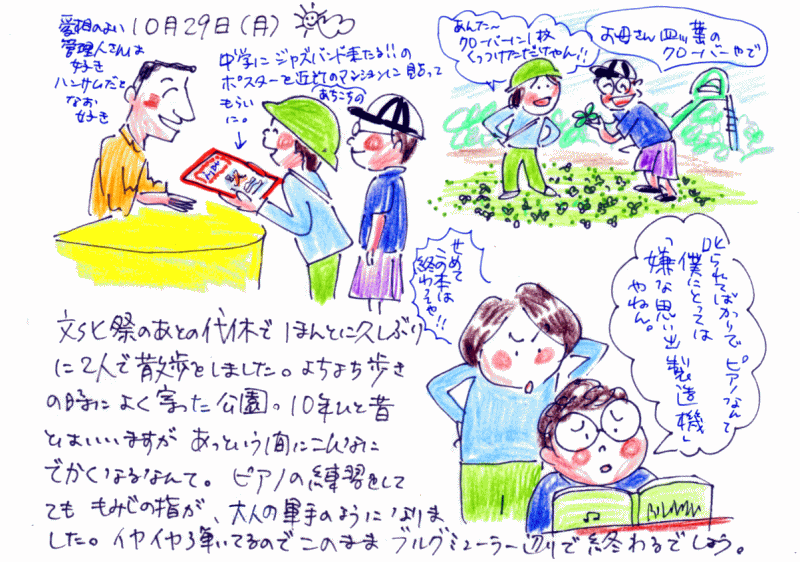 10月29日(月)
愛想のよい
管理人さんは
好き
ハンサムだと
なお
好き
中学にジャズバンド来たる!!の
ポスターを近所のマンションに貼って
あちこちの
もらい
に。
あんた〜
クローバーに1枚
くっつけただけやん!!
お母さん四ッ葉の
クローバーやで
せめて
この本は
終わるぞ!!
叱られてばかりで ピアノなんて
僕にとっては
「嫌な思い出製造機」
やねん。
文化祭のあとの代休で ほんとに久しぶり
に2人で散歩をしました。よちよち歩き
の時によく寄った公園。10年ひと昔
とはいいますが あっという間にこんなに
でかくなるなんて。ピアノの練習をして
ても もみじの指が、大人の軍手のようになりま
した。イヤイヤ弾いてるのでこのまま ブルグミューラー辺りで終わるでしょう。